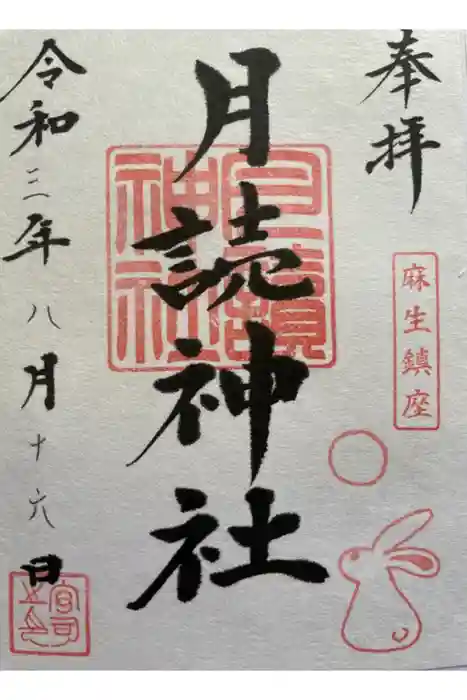 奉拝
麻生鎮座
月読神社
月讀神社
令和三年八月十六日